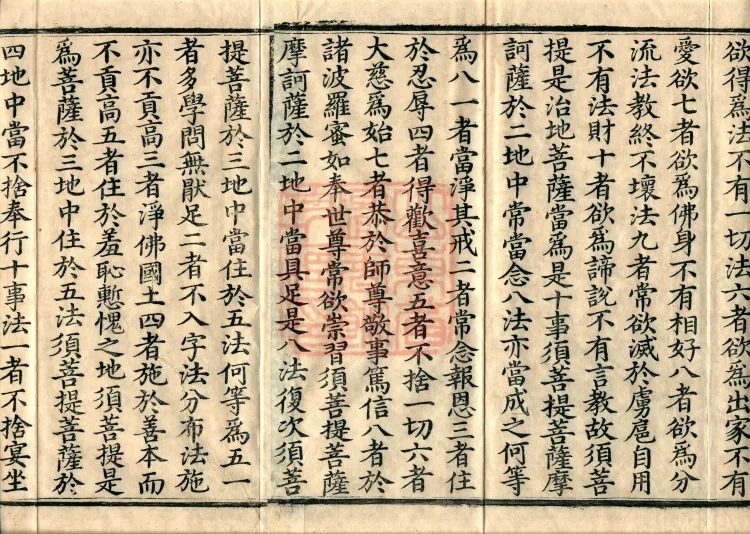 欲得為法不有一切法六者欲為出家不有
愛欲七者欲為佛身不有相好八者欲為分
流法教終不壞法九者常欲滅於虜扈自用
不有法財十者欲為諦說不有言教故須菩
提是治地菩薩當為是十事須菩提菩薩摩
訶薩於二地中常當念八法亦當成之何等
為八一者當淨其戒二者常念報恩三者住
於忍辱四者得歡喜意五者不捨一切六者
大慈為始七者恭於師尊敬事篤信八者於
諸波羅蜜如奉世尊常欲崇習須菩提菩薩
摩訶薩於二地中當具足是八法復次須菩
提菩薩於三地中當住於五法何等為五一
者多學問無猒足二者不入字法分布法施
亦不貢高三者淨佛國土四者施於善本而
不貢高五者住於羞恥慙愧之地須菩提是
為菩薩於三地中住於五法須菩提菩薩於
四地中當不捨奉行十事法一者不捨宴坐